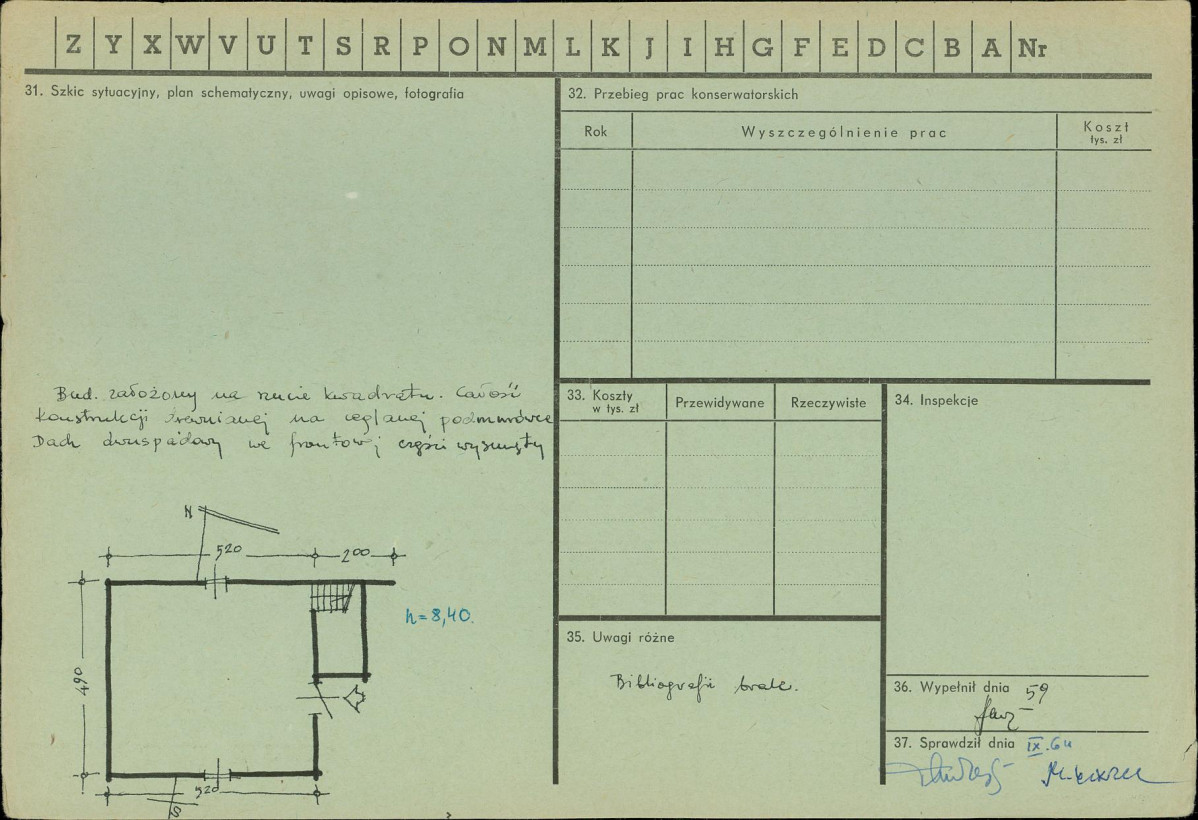 Z Y X W V U T S R P O N M L K J I H G F E D C B A Nr
31. Szkic sytuacyjny, plan schematyczny, uwagi opisowe, fotografia
Bud. założony na rzucie kwadratu. Całość
Konstrukcji drewnianej na ceglanej podmurówce
Dach dwuspadowy we frontowej części wysunięty
N
520 200
h=8,40.
490
520
S
32. Przebieg prac konserwatorskich
Rok Wyszczególnienie prac Koszt
tys. zł
33. Koszty
w tys. zł
Przewidywane Rzeczywiste
34. Inspekcje
35. Uwagi różne
Bibliografii brak.
36. Wypełnił dnia 59
37. Sprawdził dnia IX.64